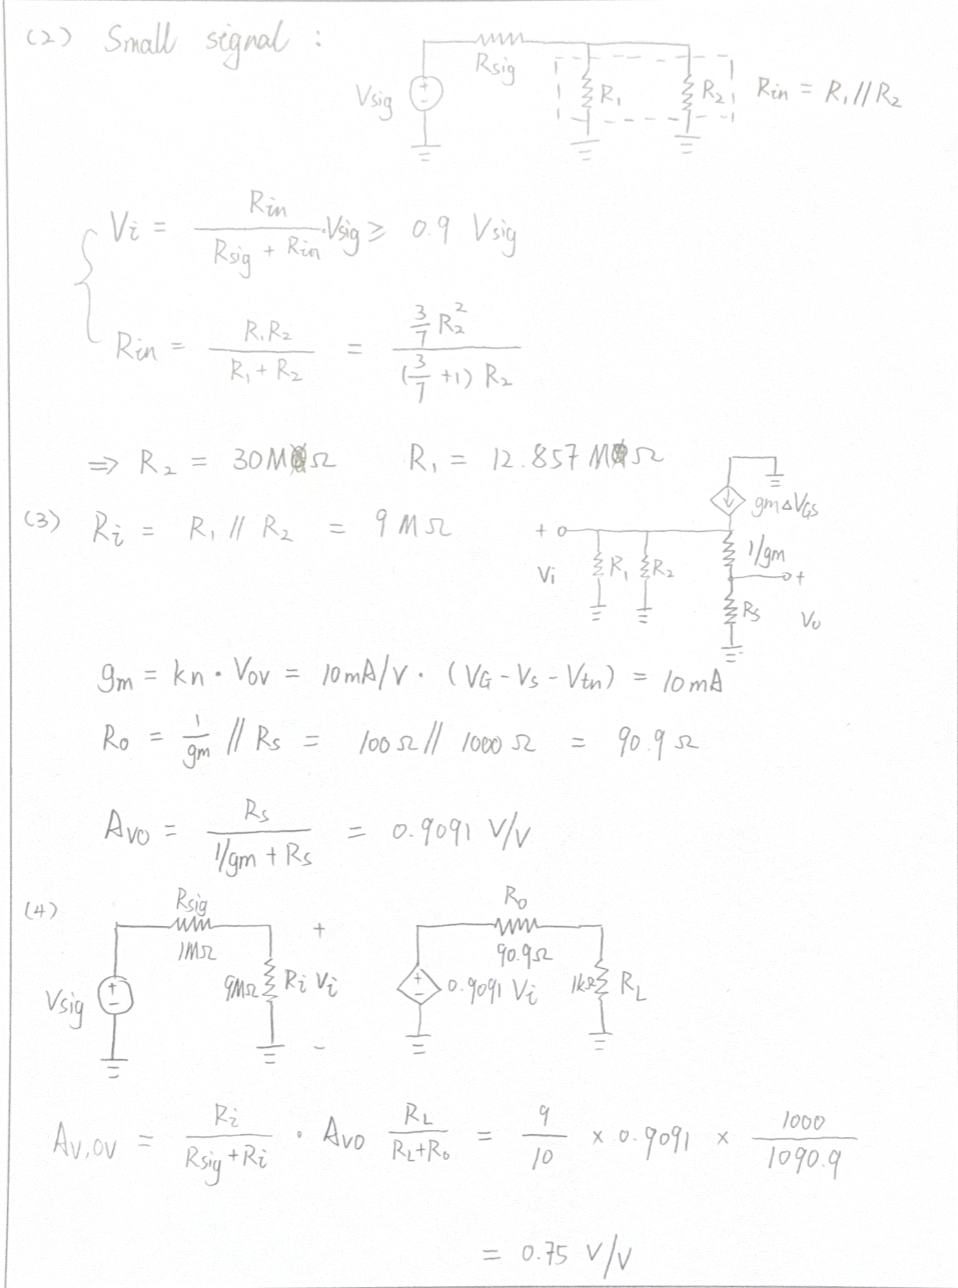 (2) Small signal :
Rsig
Vsig
R₁
R₂
Rin = R₁//R₂
Vi = Rin / (Rsig + Rin) · Vsig ≥ 0.9 Vsig
Rin = R₁R₂ / (R₁ + R₂) = (3/7 R₂²) / ((3/7 +1) R₂)
⇒ R₂ = 30MΩ R₁ = 12.857 MΩ
gm△VGS
(3) Ri = R₁ // R₂ = 9 MΩ
+
Vi
R₁
R₂
1/gm
+
Rs
Vo
gm = kn · Vov = 10mA/V · (VG - Vs - Vtn) = 10mA
Ro = 1/gm // Rs = 100Ω // 1000Ω = 90.9Ω
Avo = Rs / (1/gm + Rs) = 0.9091 V/V
(4)
Rsig
1MΩ
Vsig
9MΩ
Ri
+
Vi
-
Ro
90.9Ω
0.9091 Vi
1kΩ
RL
Av,ov = Ri / (Rsig + Ri) · Avo RL / (RL+Ro) = 9/10 × 0.9091 × 1000/1090.9
= 0.75 V/V